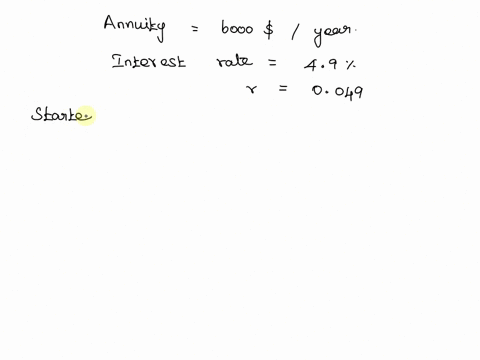 Annuity = 6000 $ / year.
Interest rate = 4.9 %
r = 0.049
Starte